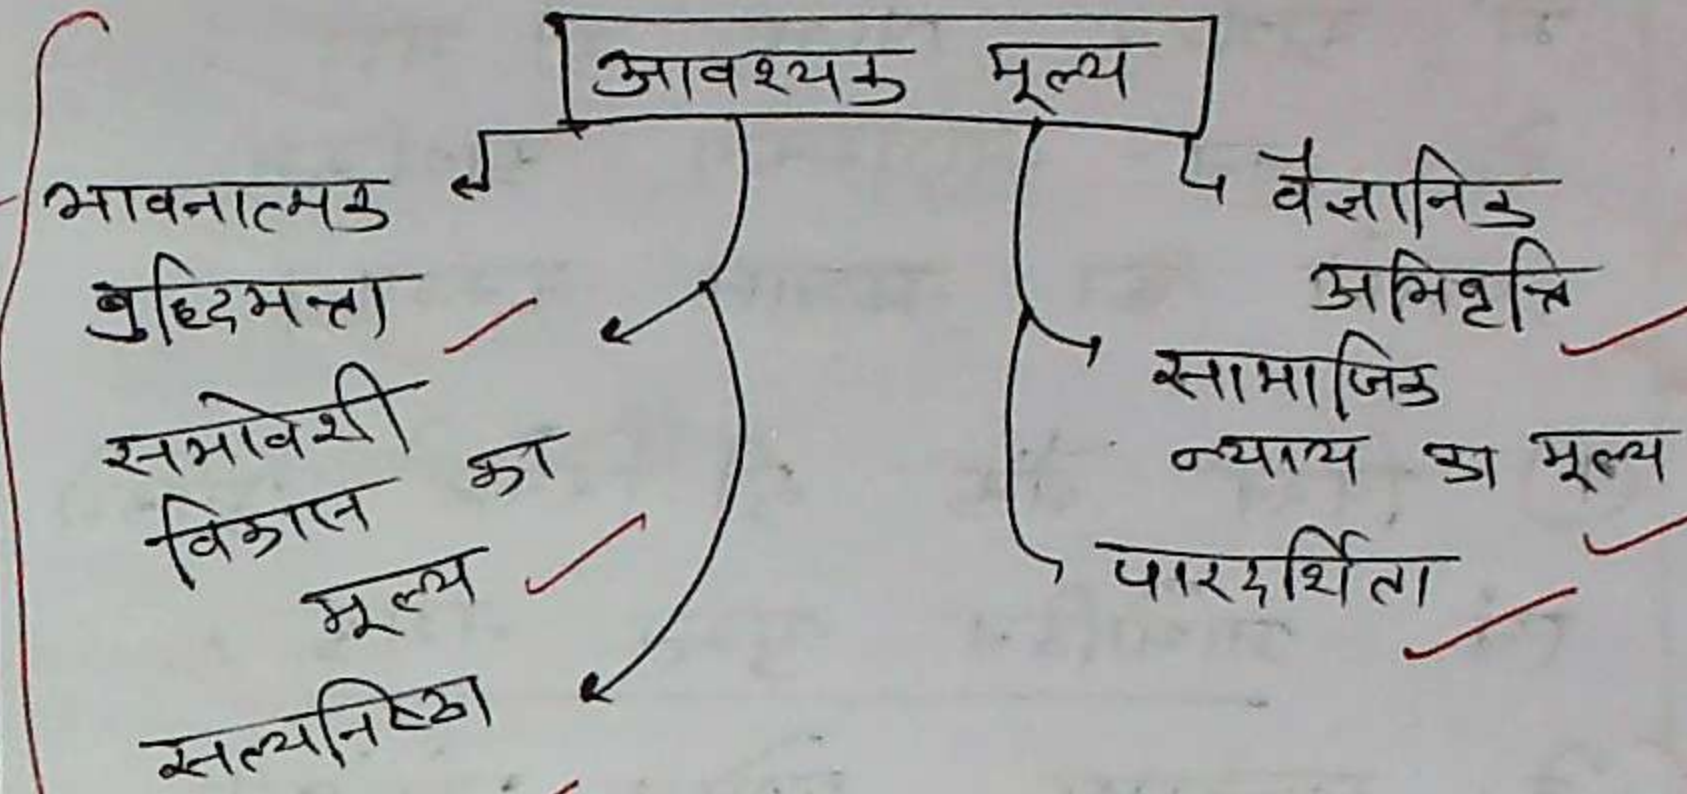 आवश्यक मूल्य
भावनात्मक
बुद्धिमत्ता
समावेशी
विकास का
मूल्य
सत्यनिष्ठा
वैज्ञानिक
अभिवृत्ति
सामाजिक
न्याय का मूल्य
पारदर्शिता